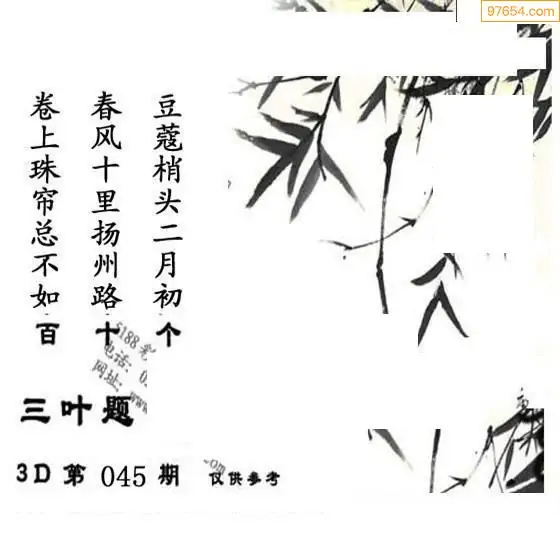 97654.com
豆蔻梢头二月初
春风十里扬州路
卷上珠帘总不如
百 十 个
5188
电话:
网址:www
三叶题
3D第 045 期
仅供参考